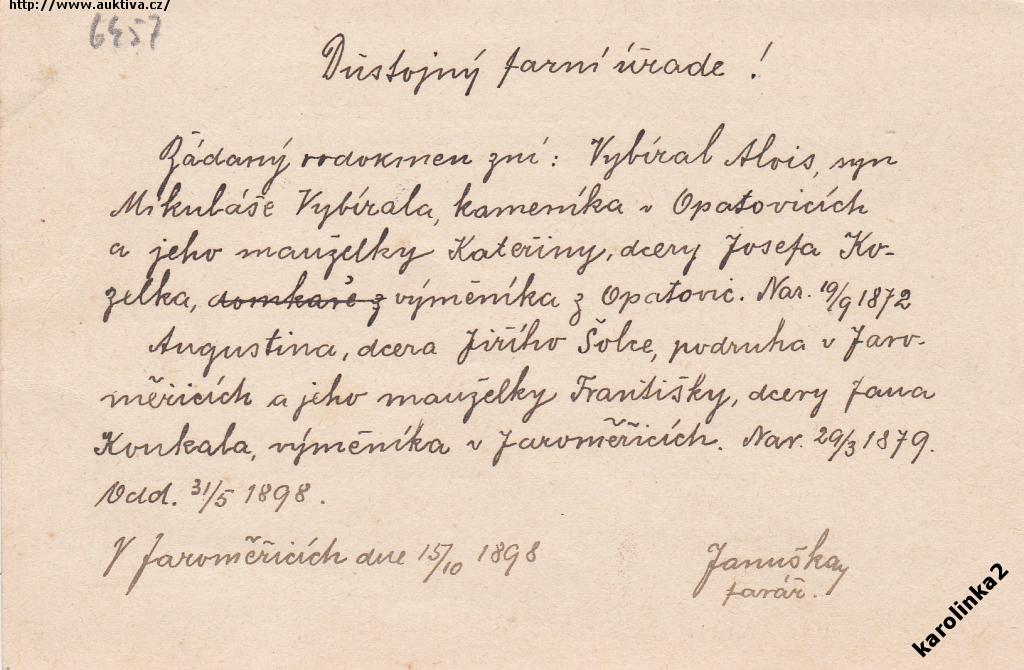 http://www.auktiva.cz/
6457
Důstojný farní úřade !
Žádaný rodokmen zní : Vybíral Alois, syn
Mikuláše Vybírala, kameníka v Opatovicích
a jeho manželky Kateřiny, dcery Josefa Ko-
zelka, domkaře z výměníka z Opatovic. Nar. 19/9 1872
Augustina, dcera Jiřího Šolce, podruha v Jaro-
měřicích a jeho manželky Františky, dcery Jana
Koukala, výměníka v Jaroměřicích. Nar. 29/3 1879.
Odd. 31/5 1898.
V Jaroměřicích dne 15/10 1898
Januška
farář.
karolinka2